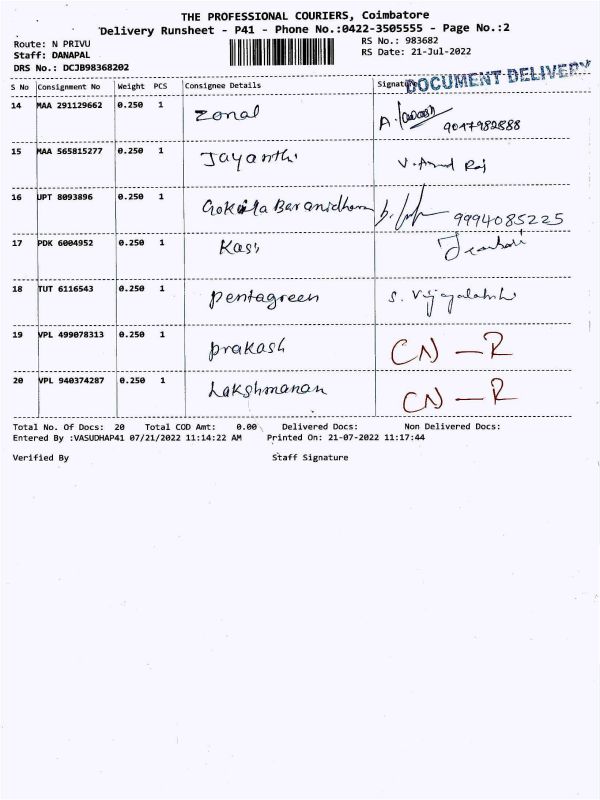 THE PROFESSIONAL COURIERS, Coimbatore
Delivery Runsheet - P41 - Phone No.:0422-3505555 - Page No.:2
Route: N PRIVU
RS No.: 983682
Staff: DANAPAL
RS Date: 21-Jul-2022
DRS No.: DCJB98368202
DOCUMENT DELIVERY
S No Consignment No Weight PCS Consignee Details Signature
14 MAA 291129662 0.250 1 Zonal A. 9047982888
15 MAA 565815277 0.250 1 Jayanthi V. Raj
16 UPT 8093896 0.250 1 Gokila Baranidharan 9994085225
17 PDK 6004952 0.250 1 Kasi
18 TUT 6116543 0.250 1 pentagreen S. Vijayalakshmi
19 VPL 499078313 0.250 1 prakash CN - R
20 VPL 940374287 0.250 1 Lakshmanan CN - R
Total No. Of Docs: 20 Total COD Amt: 0.00 Delivered Docs: Non Delivered Docs:
Entered By :VASUDHAP41 07/21/2022 11:14:22 AM Printed On: 21-07-2022 11:17:44
Verified By Staff Signature